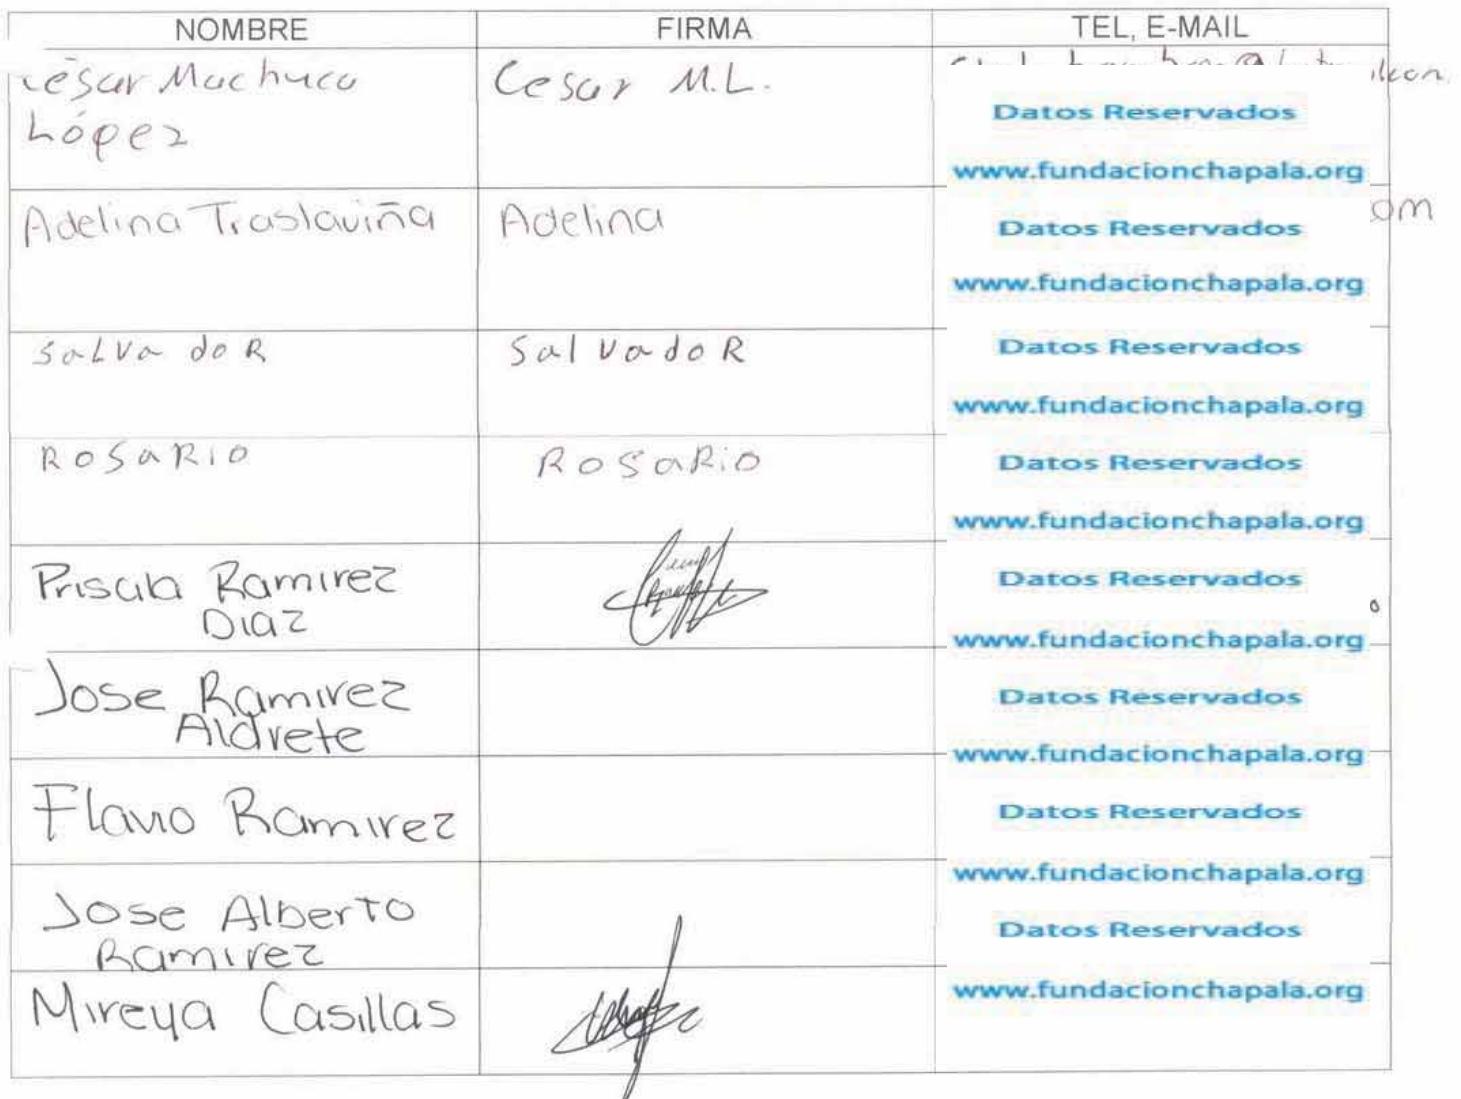 NOMBRE FIRMA TEL, E-MAIL
César Machuca Cesar M.L.
López
Datos Reservados
www.fundacionchapala.org
Adelina Traslaviña Adelina
Datos Reservados
www.fundacionchapala.org
SaLVadoR SalVadoR Datos Reservados
www.fundacionchapala.org
RoSaRIO RoSaRiO Datos Reservados
www.fundacionchapala.org
Priscila Ramirez Datos Reservados
Diaz
www.fundacionchapala.org
Jose Ramirez Datos Reservados
Aldrete
www.fundacionchapala.org
Flavio Ramirez Datos Reservados
www.fundacionchapala.org
Jose Alberto Datos Reservados
Ramirez
Mireya Casillas www.fundacionchapala.org